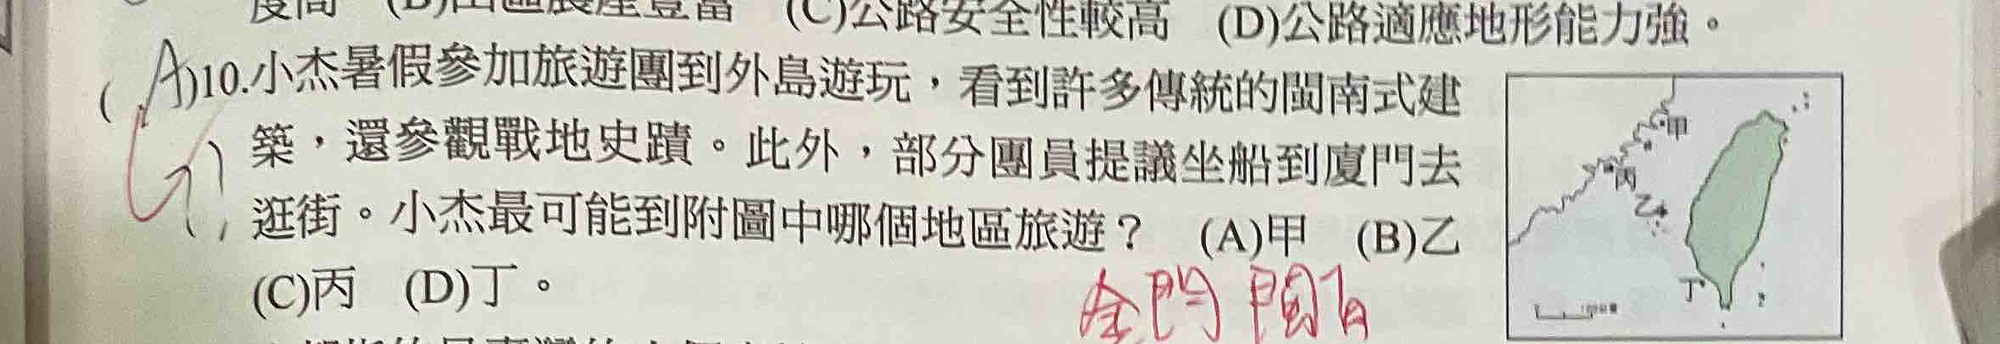 (B)山區農產豐富 (C)公路安全性較高 (D)公路適應地形能力強。
(A)10.小杰暑假參加旅遊團到外島遊玩，看到許多傳統的閩南式建
築，還參觀戰地史蹟。此外，部分團員提議坐船到廈門去
逛街。小杰最可能到附圖中哪個地區旅遊？ (A)甲 (B)乙
(C)丙 (D)丁。
甲
丙
乙
丁
金門